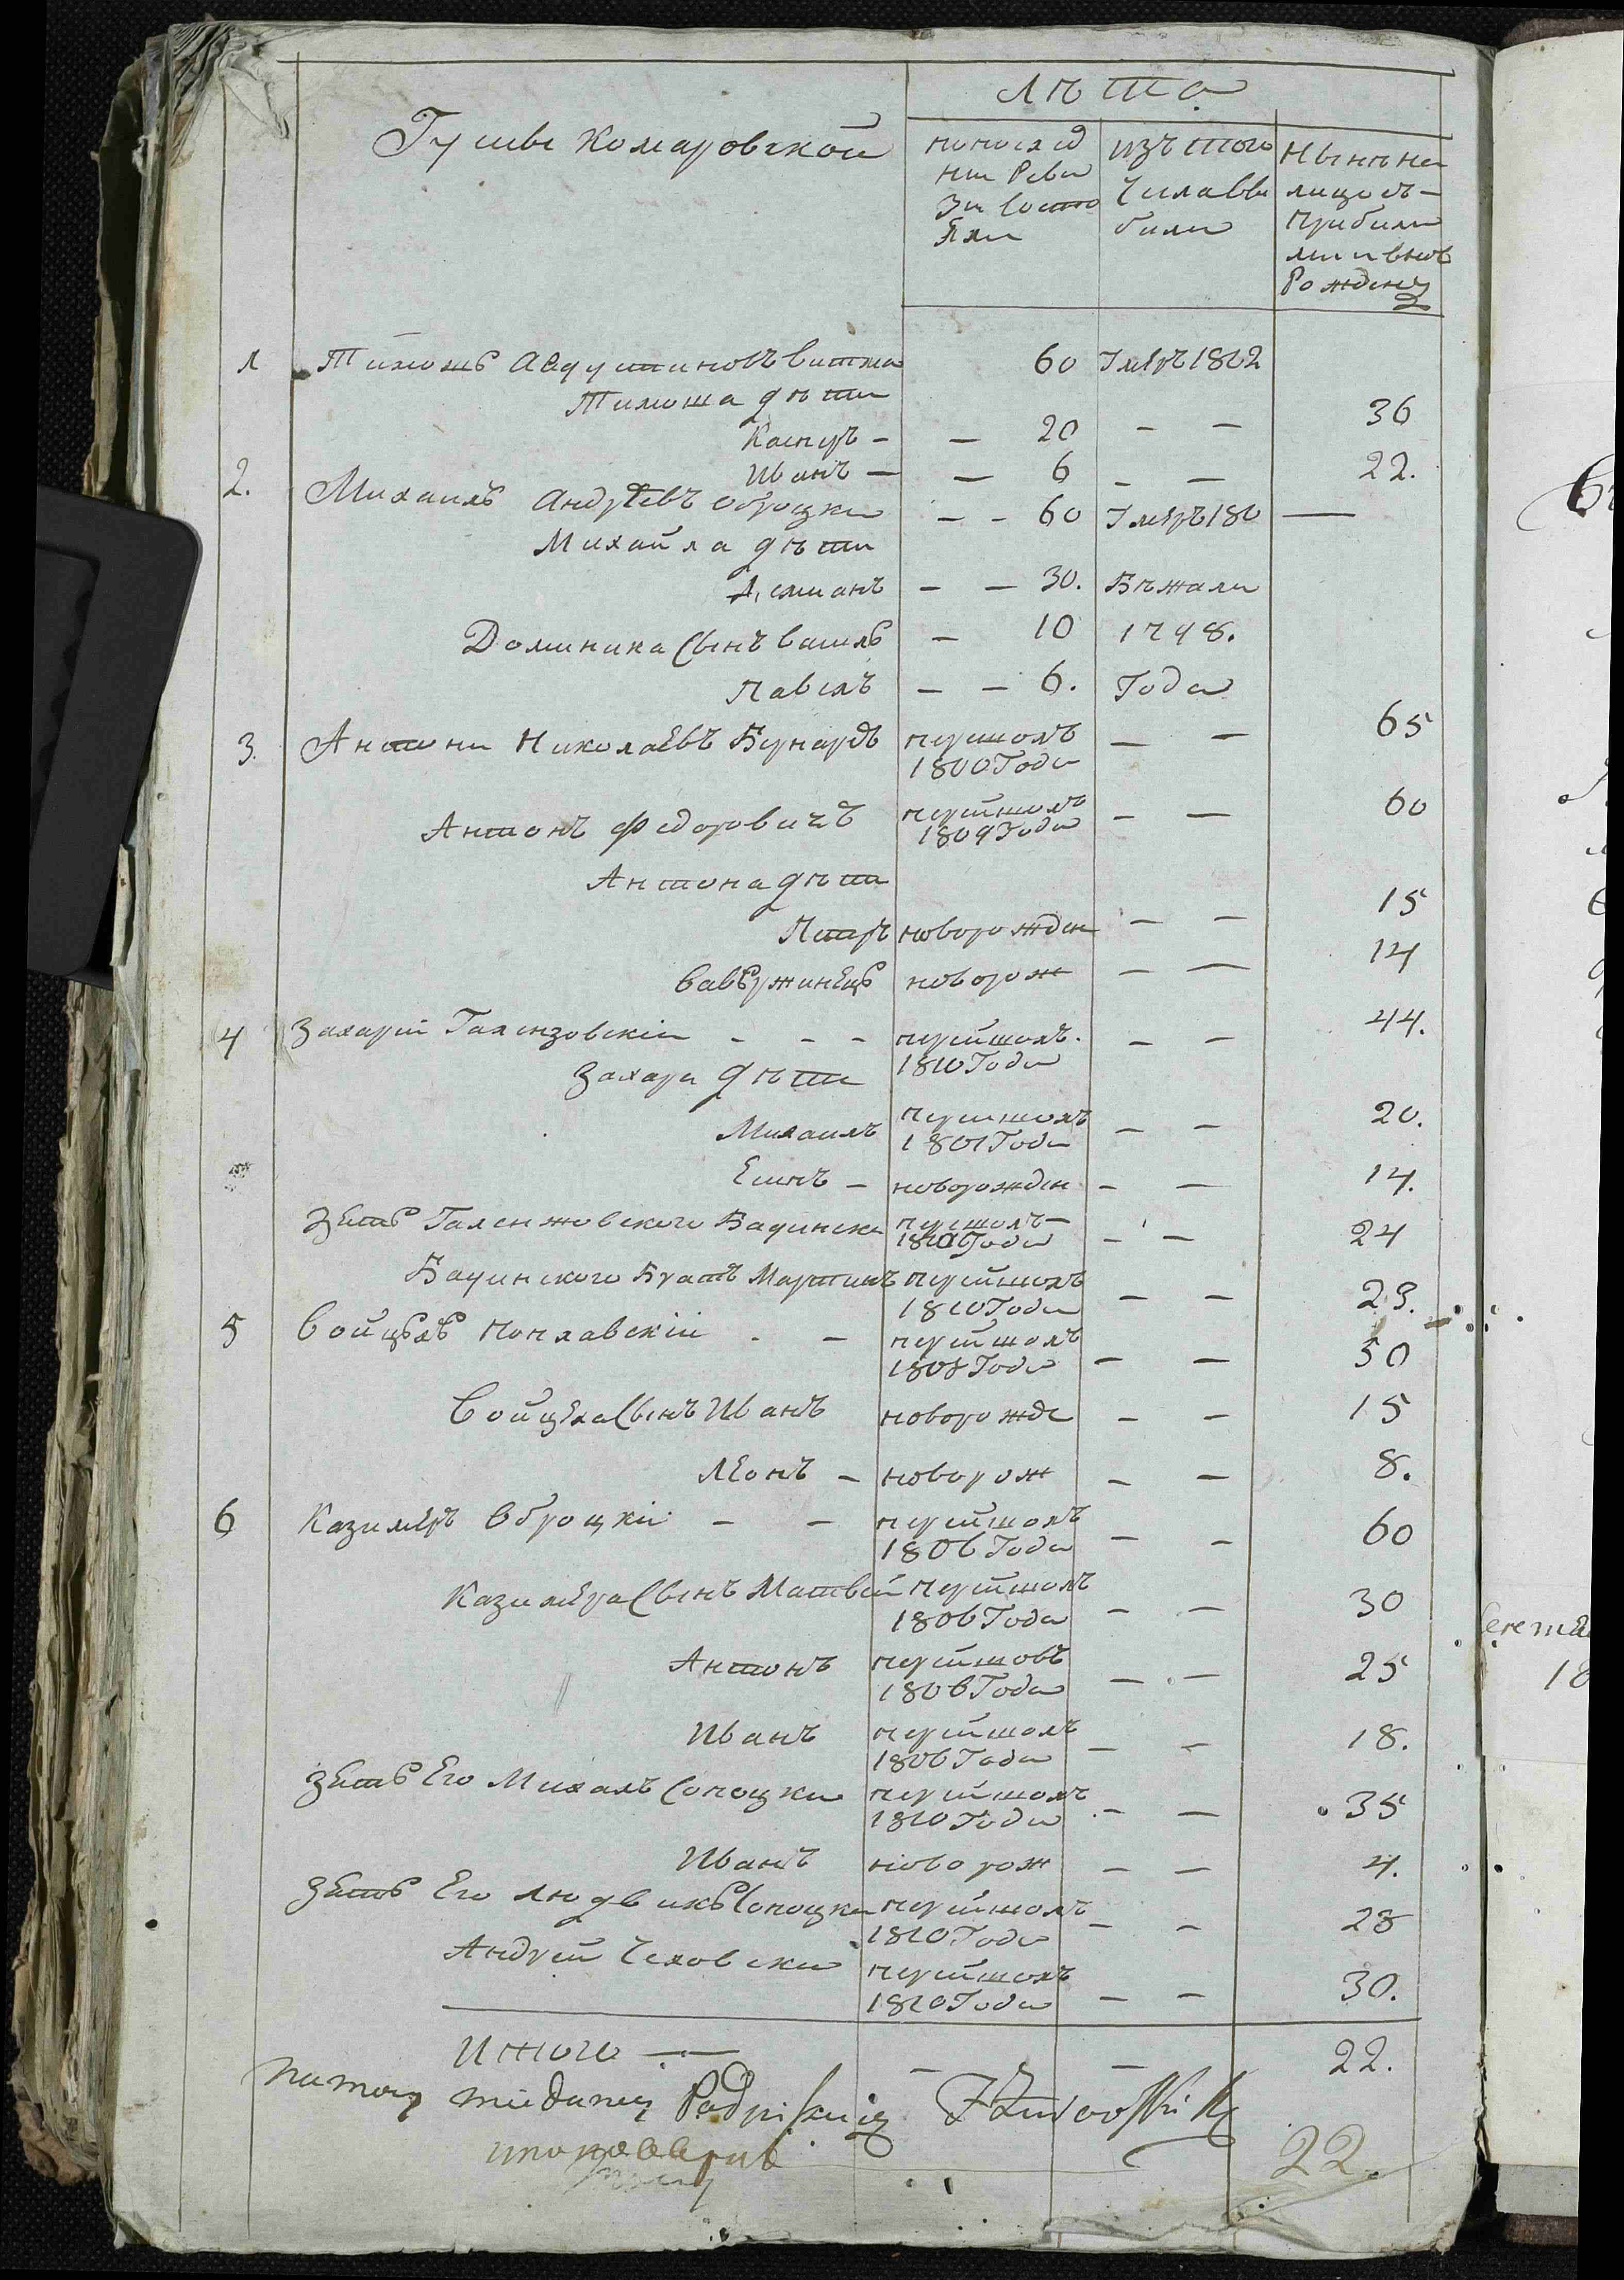 Лѣта
Гуты Комаровской
попослѣд
ни Реви
зи Состо
яли
изъ того
числа вы
были
Нынѣ на
лицо съ
прибыли
ми и внов
Рожденны
1 Тимошъ Августиновъ Витка 60 Умѣръ 1802
Тимоша дѣти
Каспръ - — 20 — — 36
Иванъ — — 6 — — 22.
2. Михаилъ Андрѣевъ Оброцки — — 60 Умѣръ 180 —
Михайла дѣти
Демианъ — — 30. Бѣжали
Доминика Сынъ Василь — 10 1798.
Павелъ — — 6. Года
3. Антони Николаевъ Бернардъ перешолъ 1800 Года — — 65
Антонъ Федоровичъ перейшолъ 1809 Года — — 60
Антона дѣти
Петръ новорожден — — 15
Вавержинецъ новорож — — 14
4 Захарий Галензовскій - - - перейшолъ 1810 Года — — 44.
Захари дѣти
Михаилъ перешолъ 1801 Года — — 20.
— новорожден — — 14.
Зеть Галенжовского перешолъ 1810 Года — — 24
Братъ Мартинъ перейшолъ 1810 Года — — 23.
5 Войцехъ Поплавскій . — перейшолъ 1808 Года — — 50
Войцеха Сынъ Иванъ новорожде — — 15
Леонъ — новорож — — 8.
6 Казимеръ Оброцкі — — перейшолъ 1806 Года — — 60
Казимера Сынъ Матвей перейшолъ 1806 Года — — 30
Антонъ перейшовъ 1806 Года — — 25
Иванъ перейшолъ 1806 Года — — 18.
Зеть Его Михалъ Сопоцки перейшолъ 1810 Года — — 35
Иванъ новорож — — 4.
Зеть Его Людвикъ Сопоцки перейшолъ 1810 Года — — 28
Андрей Чеховски перейшолъ 1810 Года — — 30.
Итого — — — 22.
22.